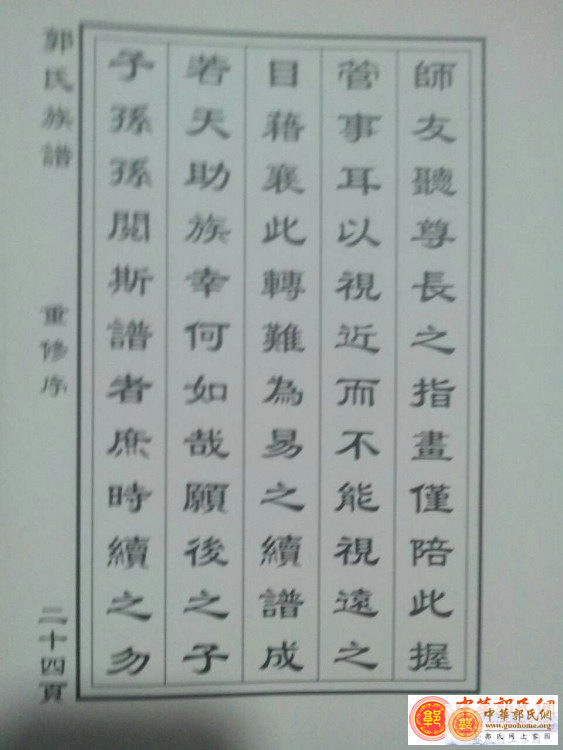 師友聽尊長之指畫僅陪此握
管事耳以視近而不能視遠之
目藉襄此轉難為易之續譜成
若天助族幸何如哉願後之子
子孫孫閱斯譜者庶時續之勿
郭氏族譜
重修序
二十四頁
中華郭氏網
中華郭氏網
www.guohome.org
郭氏网上家园